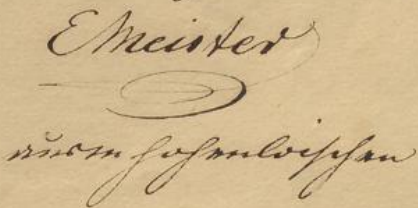 E Meister
aus m Hohenloischen